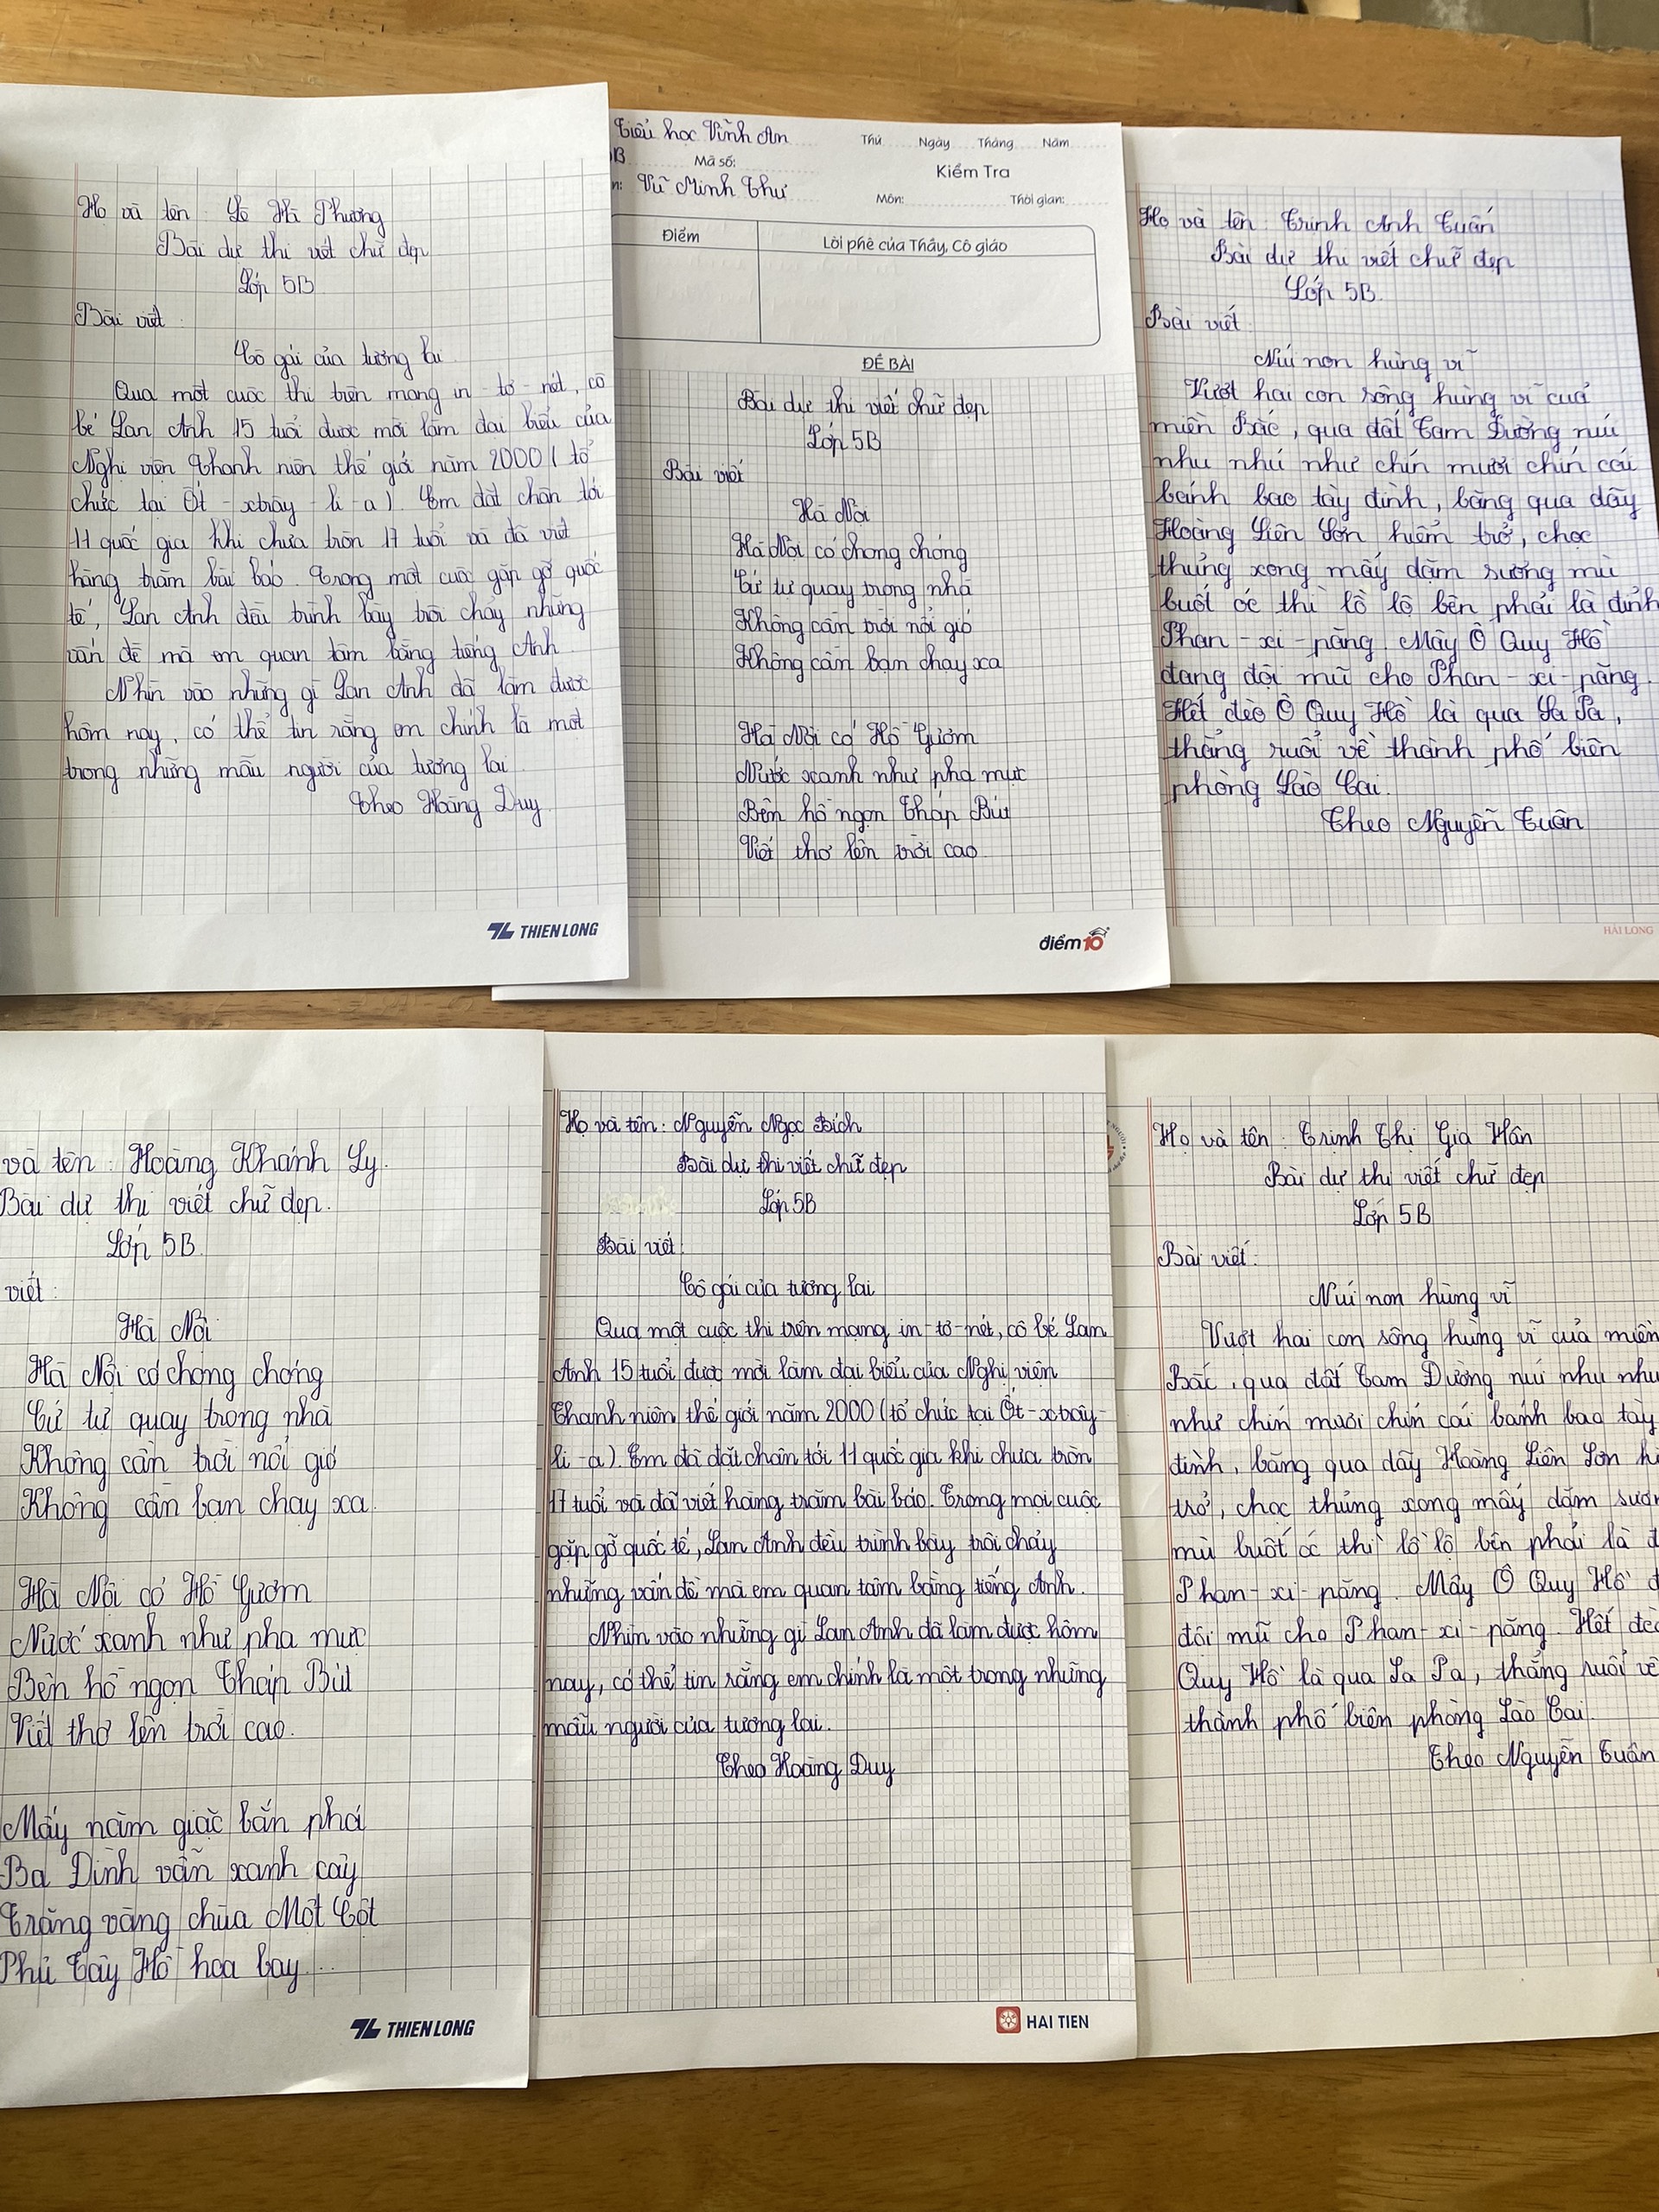 Họ và tên : Lê Hà Phương
Bài dự thi viết chữ đẹp
Lớp 5B
Bài viết
Cô gái của tương lai
Qua một cuộc thi trên mạng in - tơ - nét, cô
bé Lan Anh 15 tuổi được mời làm đại biểu của
Nghị viện Thanh niên thế giới năm 2000 ( tổ
chức tại Ốt - xtrây - li - a ) Em đặt chân tới
11 quốc gia khi chưa tròn 17 tuổi và đã viết
hàng trăm bài báo. Trong một cuộc gặp gỡ quốc
tế, Lan Anh đều trình bày trôi chảy những
vấn đề mà em quan tâm bằng tiếng Anh.
Nhìn vào những gì Lan Anh đã làm được
hôm nay, có thể tin rằng em chính là một
trong những mẫu người của tương lai
Theo Hoàng Duy
THIEN LONG
Tiểu học Vĩnh An
Thứ Ngày Tháng Năm
B Mã số:
Kiểm Tra
Vũ Minh Thư
Môn: Thời gian:
Điểm
Lời phê của Thầy, Cô giáo
ĐỀ BÀI
Bài dự thi viết chữ đẹp
Lớp 5B
Bài viết
Hà Nội
Hà Nội có chong chóng
Cứ tự quay trong nhà
Không cần trời nổi gió
Không cần bạn chạy xa
Hà Nội có Hồ Gươm
Nước xanh như pha mực
Bên hồ ngọn Tháp Bút
Viết thơ lên trời cao
điểm 10
Họ và tên : Trịnh Anh Tuấn
Bài dự thi viết chữ đẹp
Lớp 5B
Bài viết
Núi non hùng vĩ
Vượt hai con sông hùng vĩ của
miền Bắc, qua đất Tam Đường núi
nhu nhú như chín mươi chín cái
bánh bao tày đình, băng qua dãy
Hoàng Liên Sơn hiểm trở, chọc
thủng xong mấy dặm sương mù
buốt óc thì lồ lộ bên phải là đỉnh
Phan - xi - păng. Mây Ô Quy Hồ
đang đội mũ cho Phan - xi - păng.
Hết đèo Ô Quy Hồ là qua Sa Pa,
thẳng ruổi về thành phố biên
phòng Lào Cai.
Theo Nguyễn Tuân
HẢI LONG
và tên : Hoàng Khánh Ly.
Bài dự thi viết chữ đẹp.
Lớp 5B
viết :
Hà Nội
Hà Nội có chong chóng
Cứ tự quay trong nhà
Không cần trời nổi gió
Không cần bạn chạy xa.
Hà Nội có Hồ Gươm
Nước xanh như pha mực
Bên hồ ngọn Tháp Bút
Viết thơ lên trời cao.
Mấy năm giặc bắn phá
Ba Đình vẫn xanh cây
Trăng vàng chùa Một Cột
Phủ Tây Hồ hoa bay...
THIEN LONG
Họ và tên : Nguyễn Ngọc Bích
Bài dự thi viết chữ đẹp
Lớp 5B
Bài viết:
Cô gái của tương lai
Qua một cuộc thi trên mạng in-tơ-nét, cô bé Lan
Anh 15 tuổi được mời làm đại biểu của Nghị viện
Thanh niên thế giới năm 2000 (tổ chức tại Ốt-xtrây-
li-a). Em đã đặt chân tới 11 quốc gia khi chưa tròn
17 tuổi và đã viết hàng trăm bài báo. Trong mọi cuộc
gặp gỡ quốc tế, Lan Anh đều trình bày trôi chảy
những vấn đề mà em quan tâm bằng tiếng Anh.
Nhìn vào những gì Lan Anh đã làm được hôm
nay, có thể tin rằng em chính là một trong những
mẫu người của tương lai.
Theo Hoàng Duy
HAI TIEN
Họ và tên : Trịnh Thị Gia Hân
Bài dự thi viết chữ đẹp
Lớp 5B
Bài viết:
Núi non hùng vĩ
Vượt hai con sông hùng vĩ của miền
Bắc, qua đất Tam Đường núi nhu nhú
như chín mươi chín cái bánh bao tày
đình, băng qua dãy Hoàng Liên Sơn
trở, chọc thủng xong mấy dặm
mù buốt óc thì lồ lộ bên phải là
Phan-xi-păng. Mây Ô Quy Hồ
đội mũ cho Phan-xi-păng. Hết
Quy Hồ là qua Sa Pa, thẳng ruổi về
thành phố biên phòng Lào Cai.
Theo Nguyễn Tuân